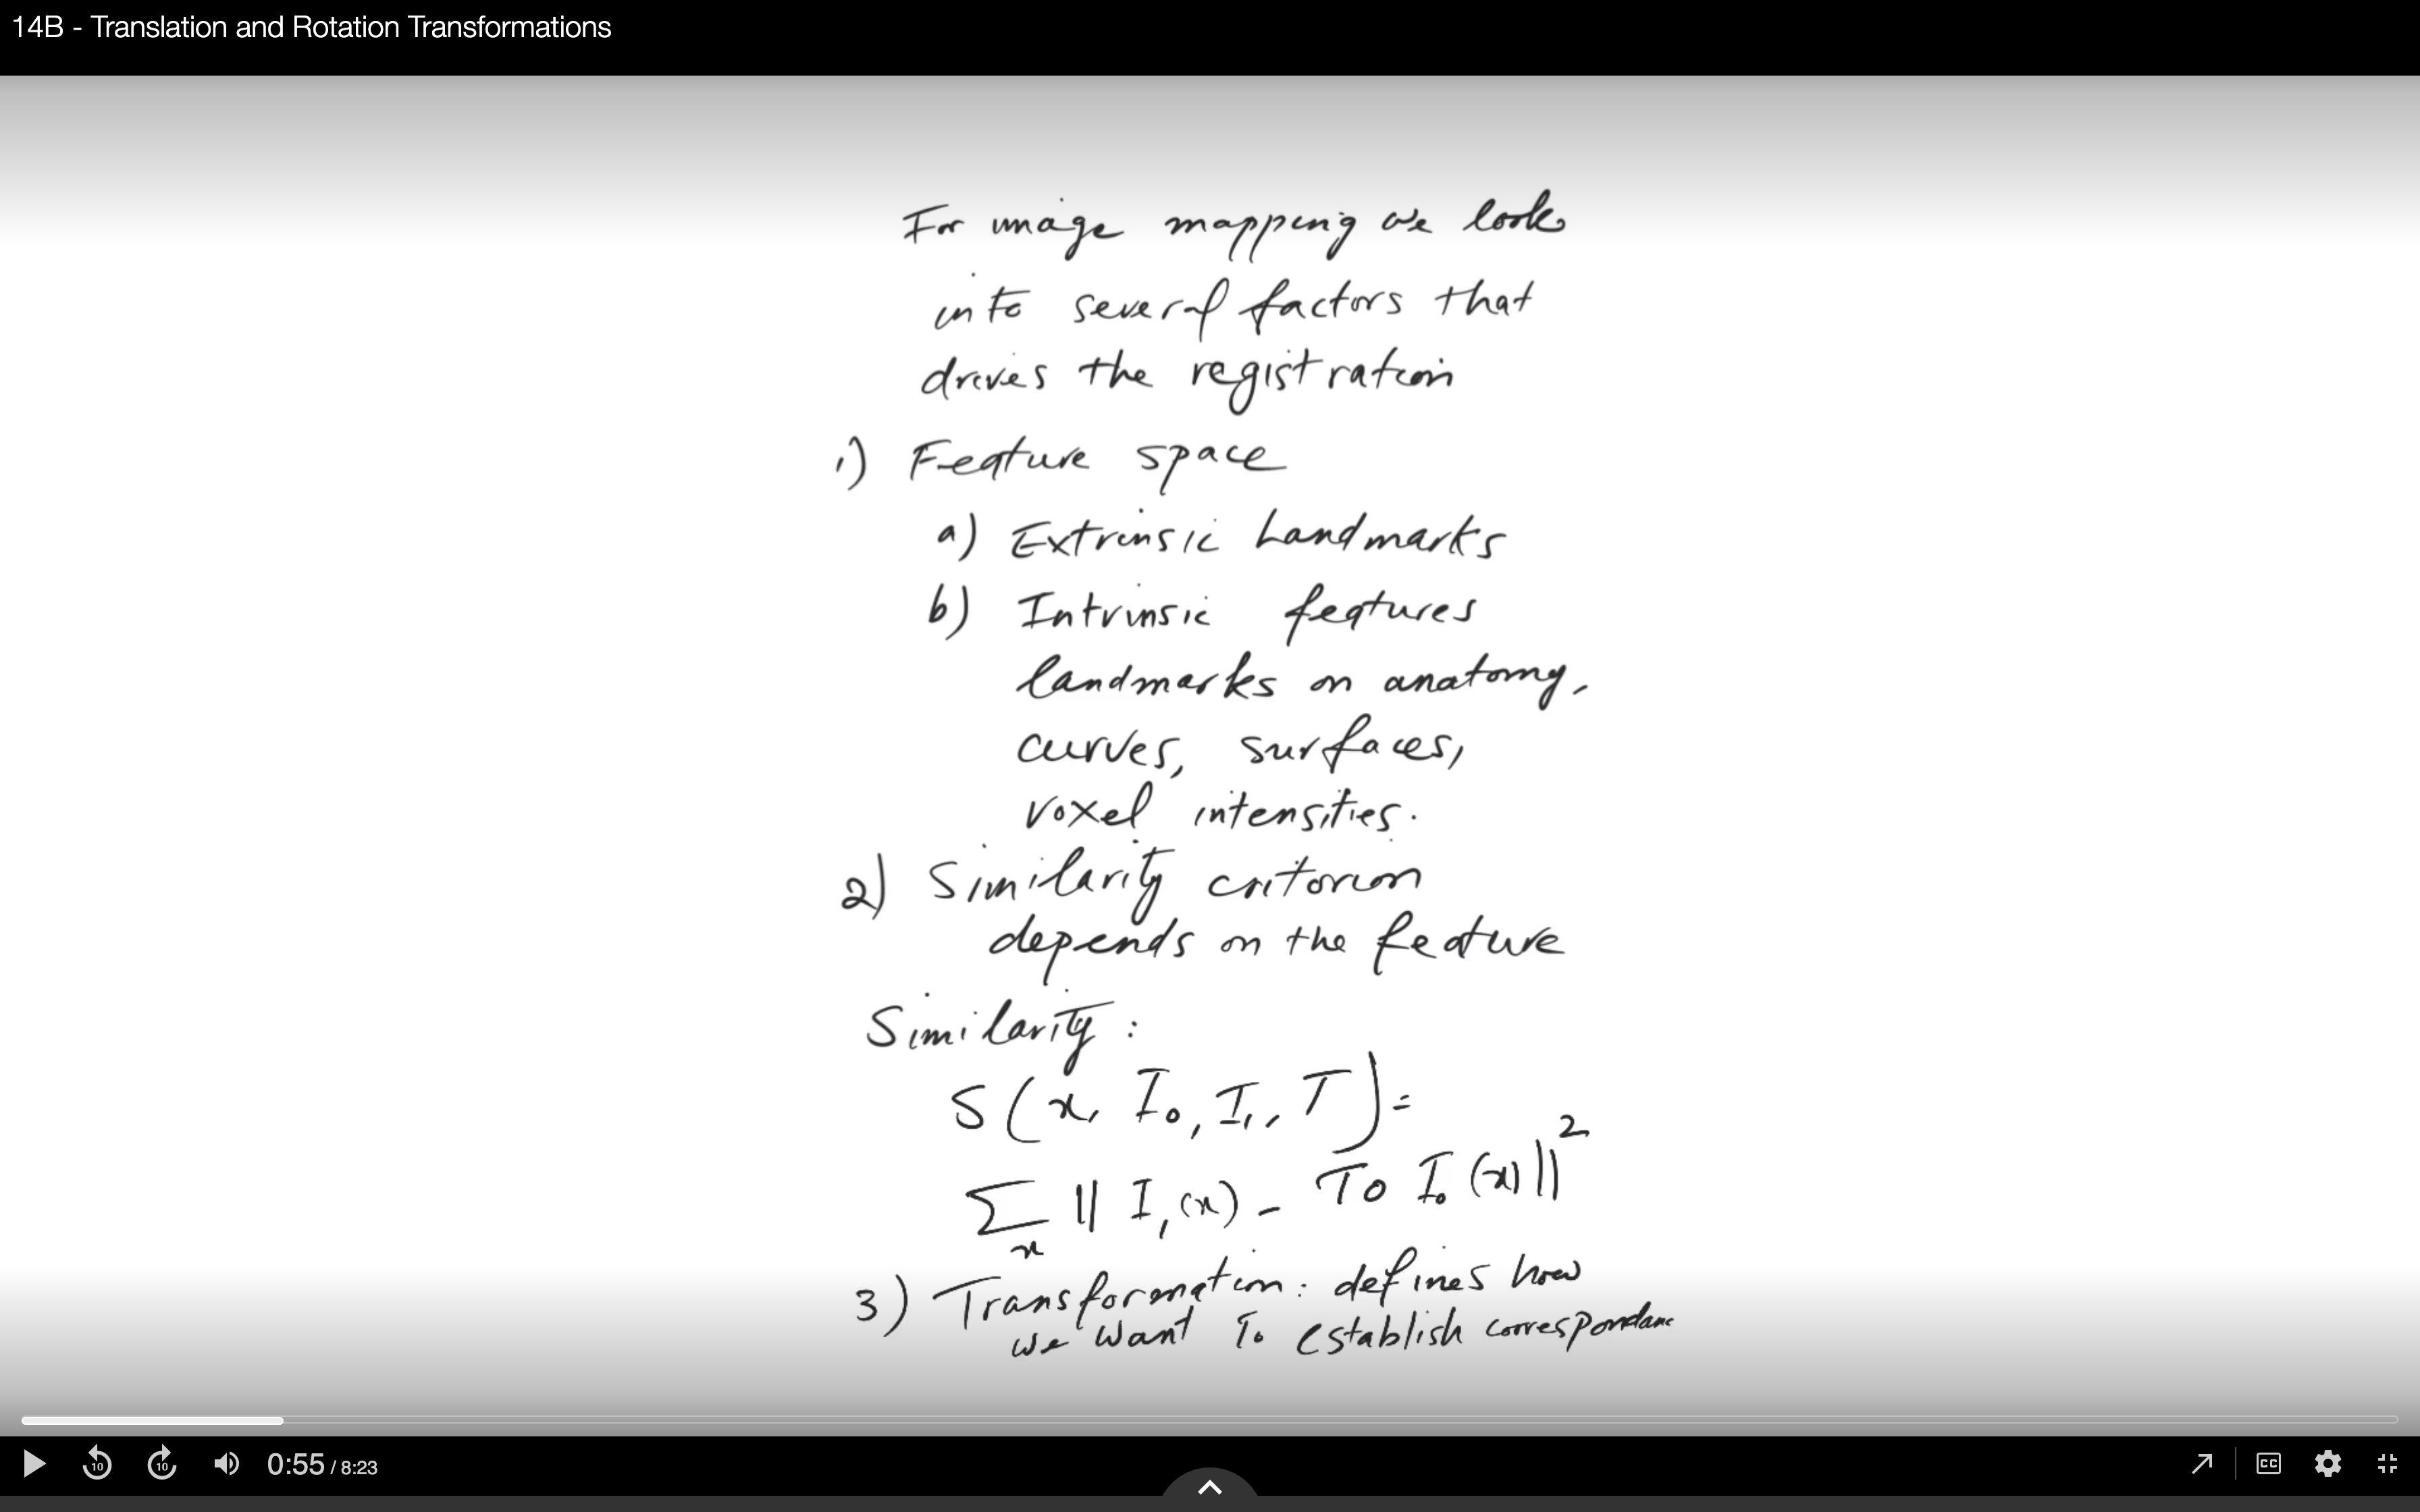 14B - Translation and Rotation Transformations
For image mapping we look
into several factors that
drives the registration
1) Feature space
a) Extrinsic Landmarks
b) Intrinsic features
landmarks on anatomy,
curves, surfaces,
voxel intensities.
2) Similarity criterion
depends on the feature
Similarity :
S(x, I₀, I₁, T) =
∑ₓ || I₁(x) - T o I₀(x) ||²
3) Transformation : defines how
we want to establish correspondanc
10 10 0:55 / 8:23 CC